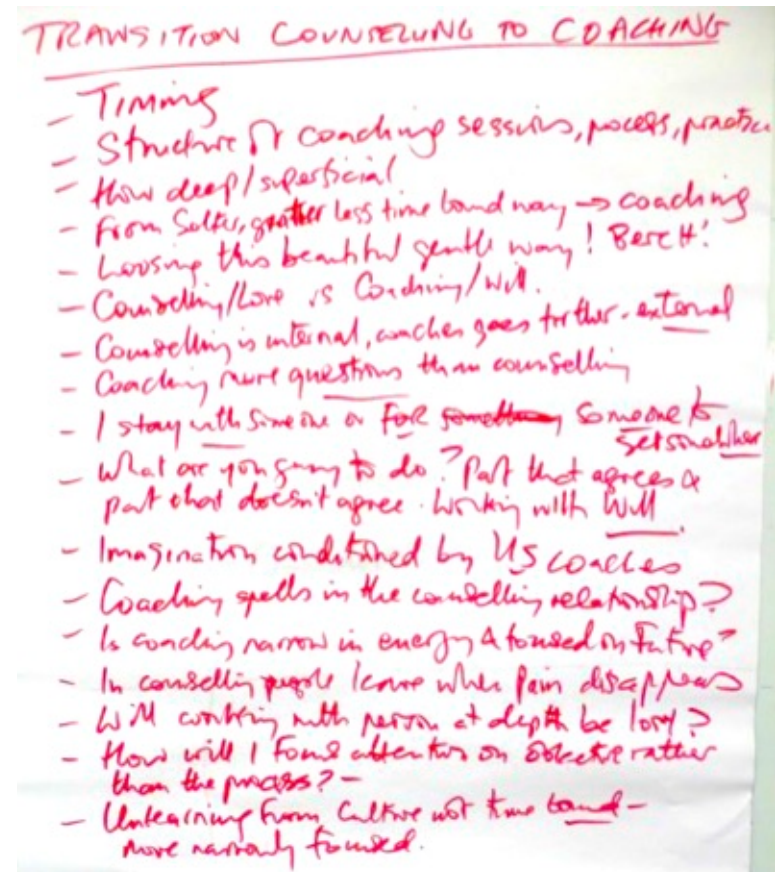 TRANSITION COUNSELLING TO COACHING
- Timing
- Structure of coaching sessions, process, practice
- How deep/superficial
- From softer, gentler less time bound way → coaching
- Loosing this beautiful gentle way!
- Counselling/Love is Coaching/Will.
- Counselling is internal, coaches goes further - external
- Coaching more questions than counselling
- I stay with someone or FOR someone to
get somewhere
- What are you going to do? Part that agrees &
part that doesn't agree. Working with Will
- Imagination conditioned by US coaches
- Coaching spells in the counselling relationship?
- Is coaching narrow in energy & focused on Future?
- In counselling people leave when pain disappears
- Will working with person at depth be lost?
- How will I focus attention on objective rather
than the process? -
- Unlearning from culture not time bound -
more narrowly focused.